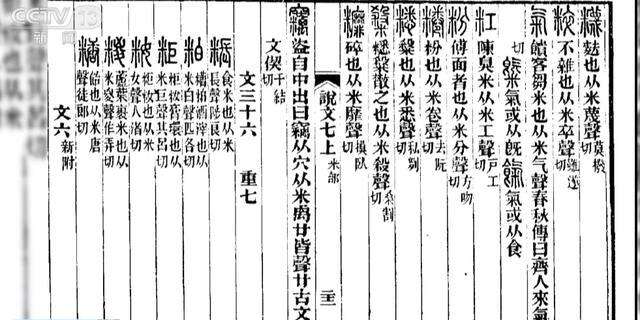 麩也从米蔑聲莫撥切
粹不雜也从米卒聲雖遂切
氣饋客芻米也从米气聲春秋傳曰齊人來氣
切氣或从旣餼氣或从食
粠陳臭米从米工聲戶工切
粉傅面者也从米分聲方吻切
粉也从米卷聲去阮切
也从米悉聲私列切
散之也从米殺聲桑割切
碎也从米靡聲摸臥切
竊盜自中出曰竊从穴从米禼廿皆聲廿古文
說文七上 米部
文偰千結切
文三十六 重七
粻食米也从米長聲陟良切
粕糟粕酒滓也从米白聲匹各切
粔粔籹膏環也从米巨聲其呂切
籹粔籹也从米女聲人渚切
糉蘆葉裹米也从米㚇聲作弄切
糖飴也从米唐聲徒郎切
文六 新附
CCTV 13
新闻